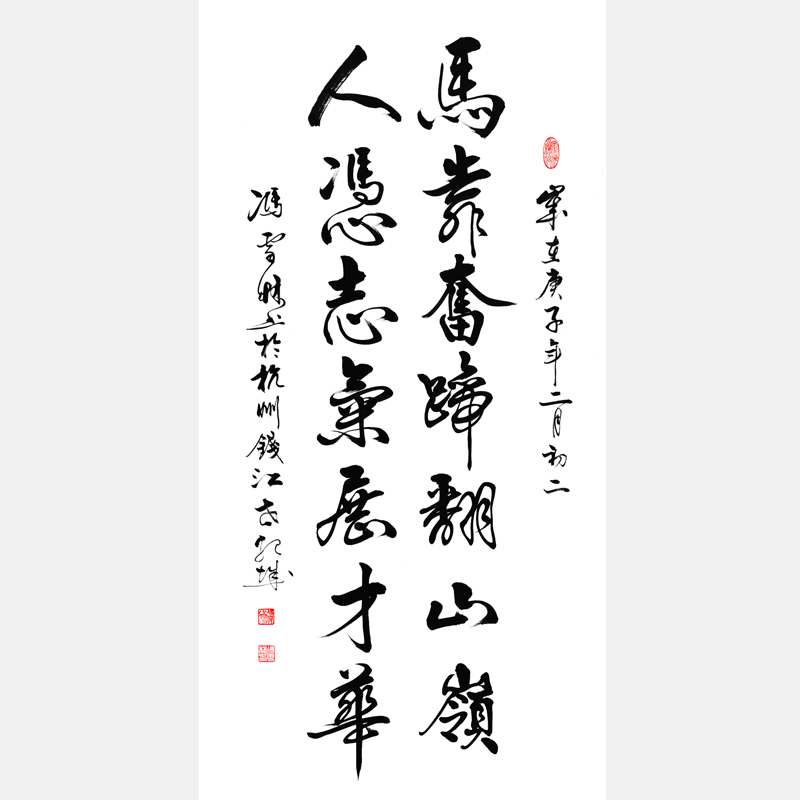 歲在庚子年二月初二
馬靠奮蹄翻山嶺
人憑志氣展才華
馮雪林書於杭州錢江世紀城